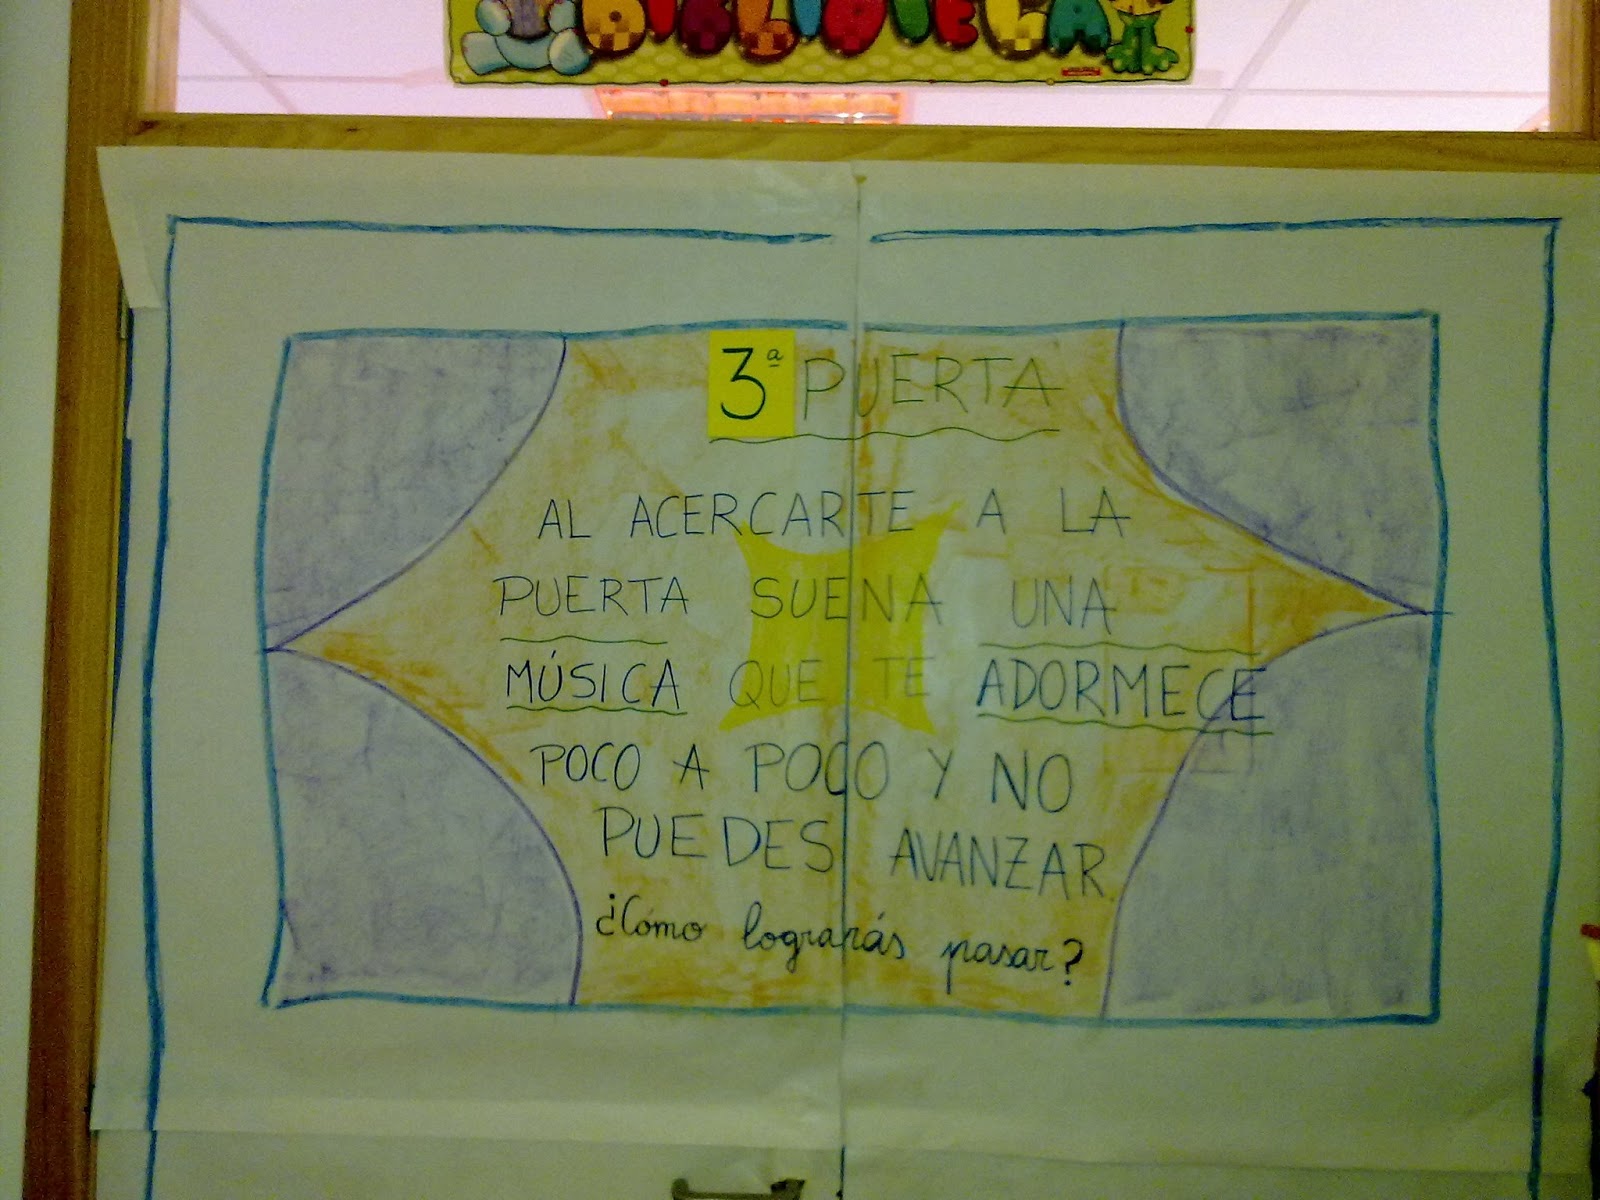 BIBLIOTECA
3ª PUERTA
AL ACERCARTE A LA
PUERTA SUENA UNA
MÚSICA QUE TE ADORMECE
POCO A POCO Y NO
PUEDES AVANZAR.
¿Cómo lograrás pasar?